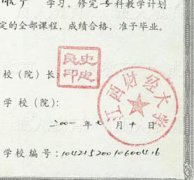 学习，修完专科教学计划
定的全部课程，成绩合格，准予毕业。
校（院）长
良史印忠
学校（院）：
江西财经大学
二〇〇一年七月十日
学校编号：104215200106004416